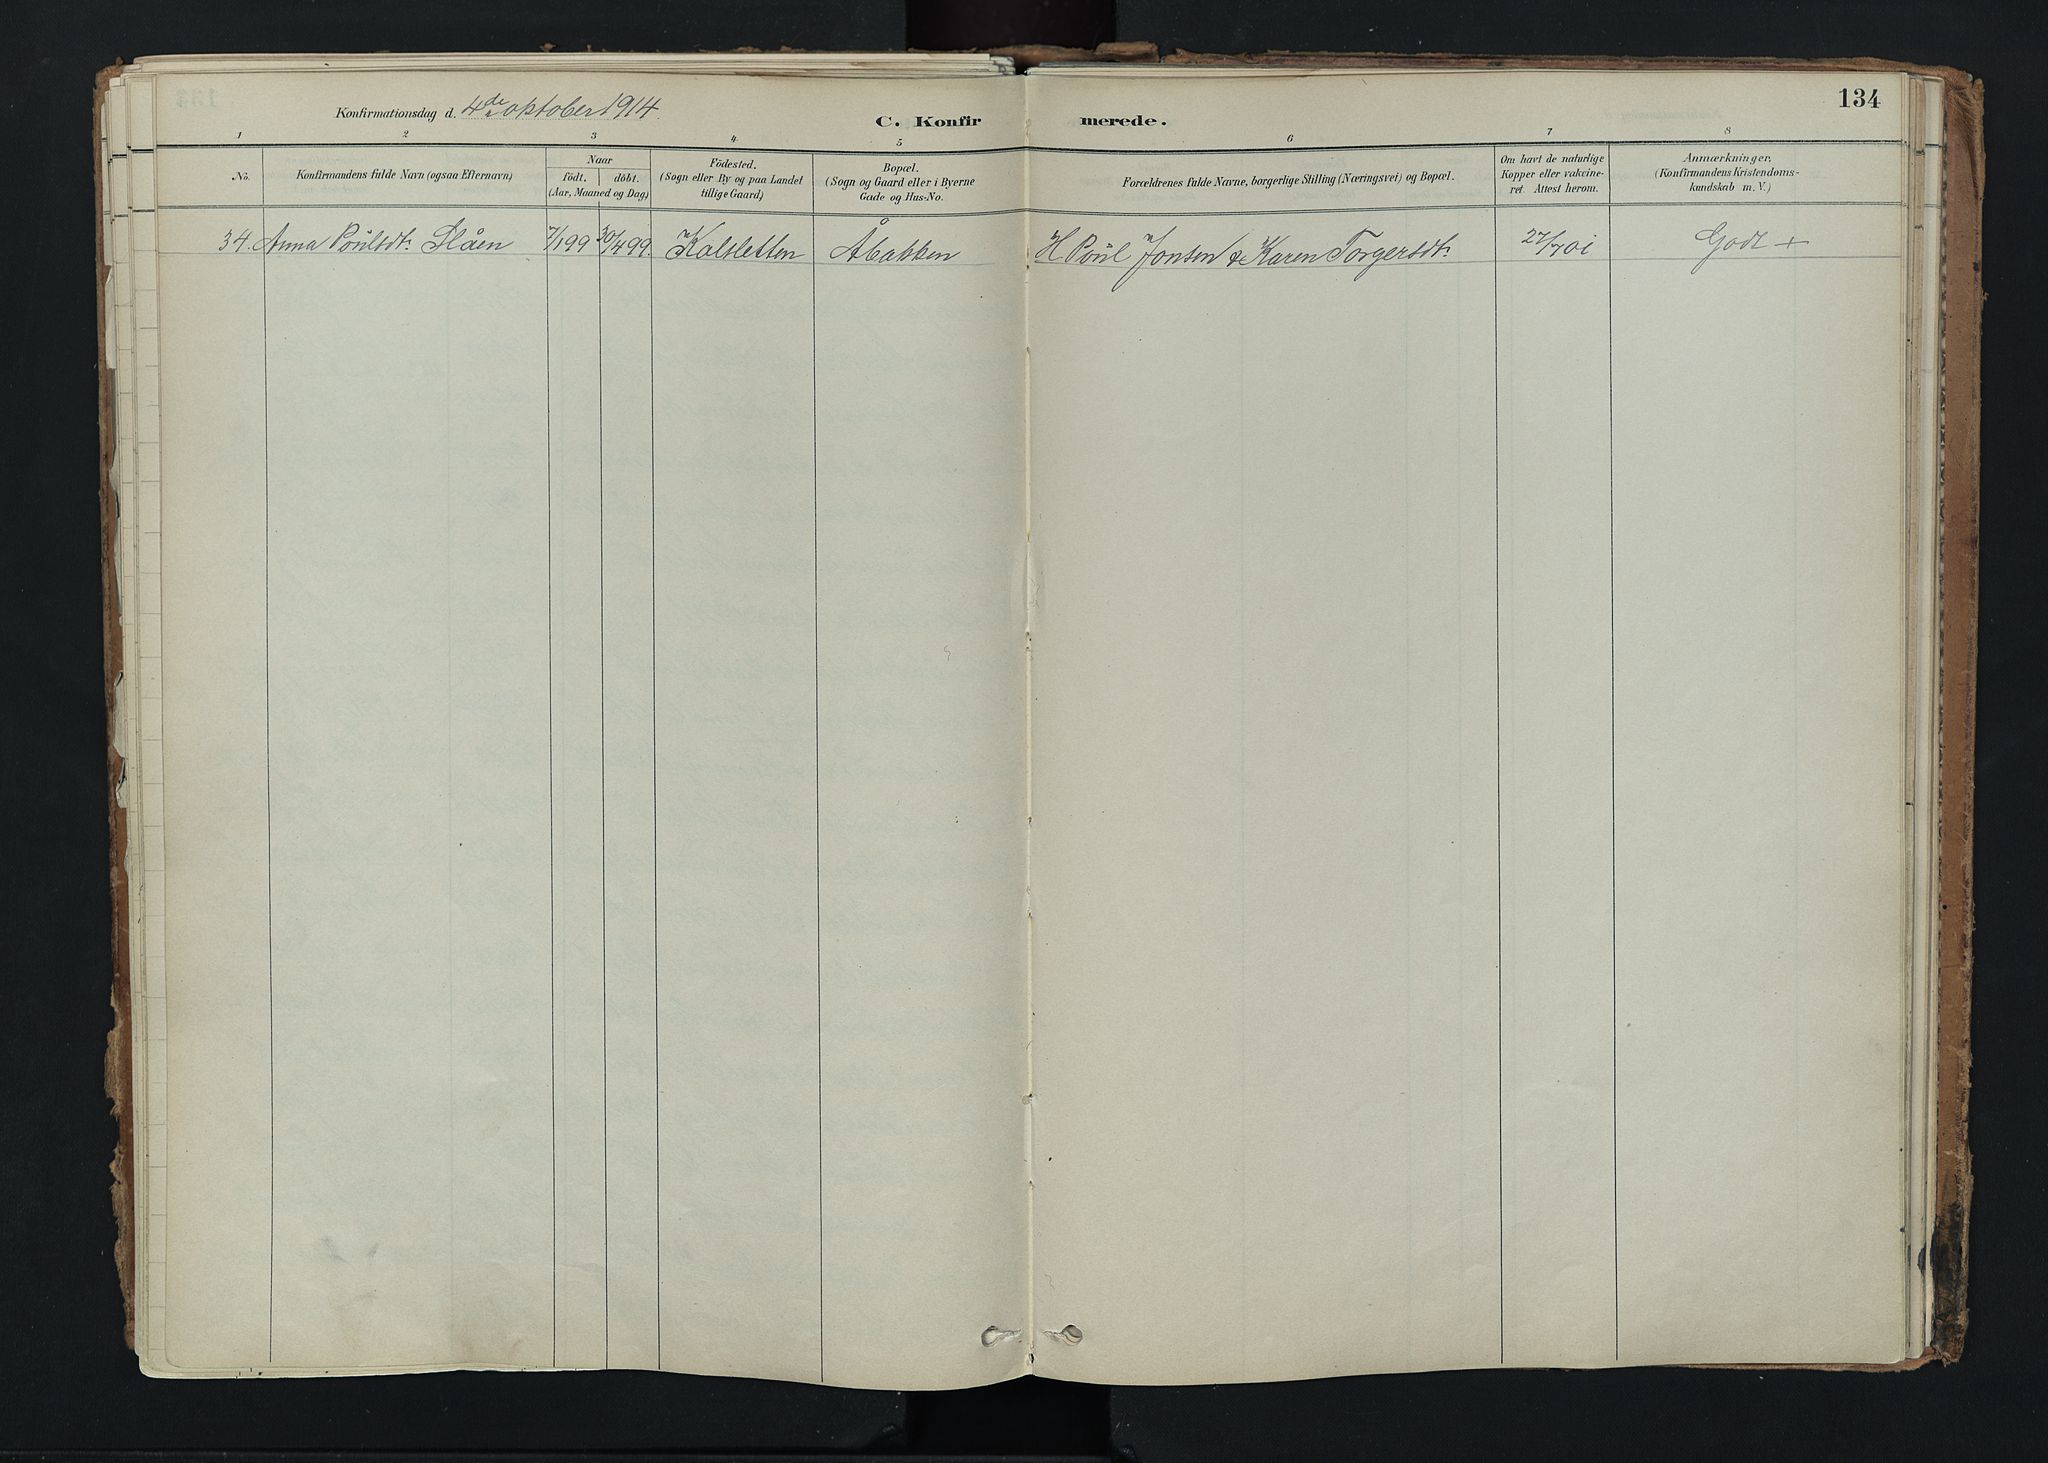 134
Konfirmationsdag d. 4de oktober 1914.
C. Konfirmerede.
1 2 3 4. 5 6 7 8
No. Konfirmandens fulde Navn (ogsaa Efternavn) Naar födt. döbt. (Aar, Maaned og Dag)
Födested. (Sogn eller By og paa Landet tillige Gaard)
Bopæl. (Sogn og Gaard eller i Byerne Gade og Hus-No.
Forældrenes fulde Navne, borgerlige Stilling (Næringsvei) og Bopæl.
Om havt de naturlige Kopper eller vakcineret. Attest herom.
Anmærkninger. (Konfirmandens Kristendomskundskab m. V.)
34. Anna Poülsdt. Slåen 7/1 99 30/4 99. Kalsletten Åbakken H Poül Jonsen & Karen Torgersdt. 27/7 01 Godt +